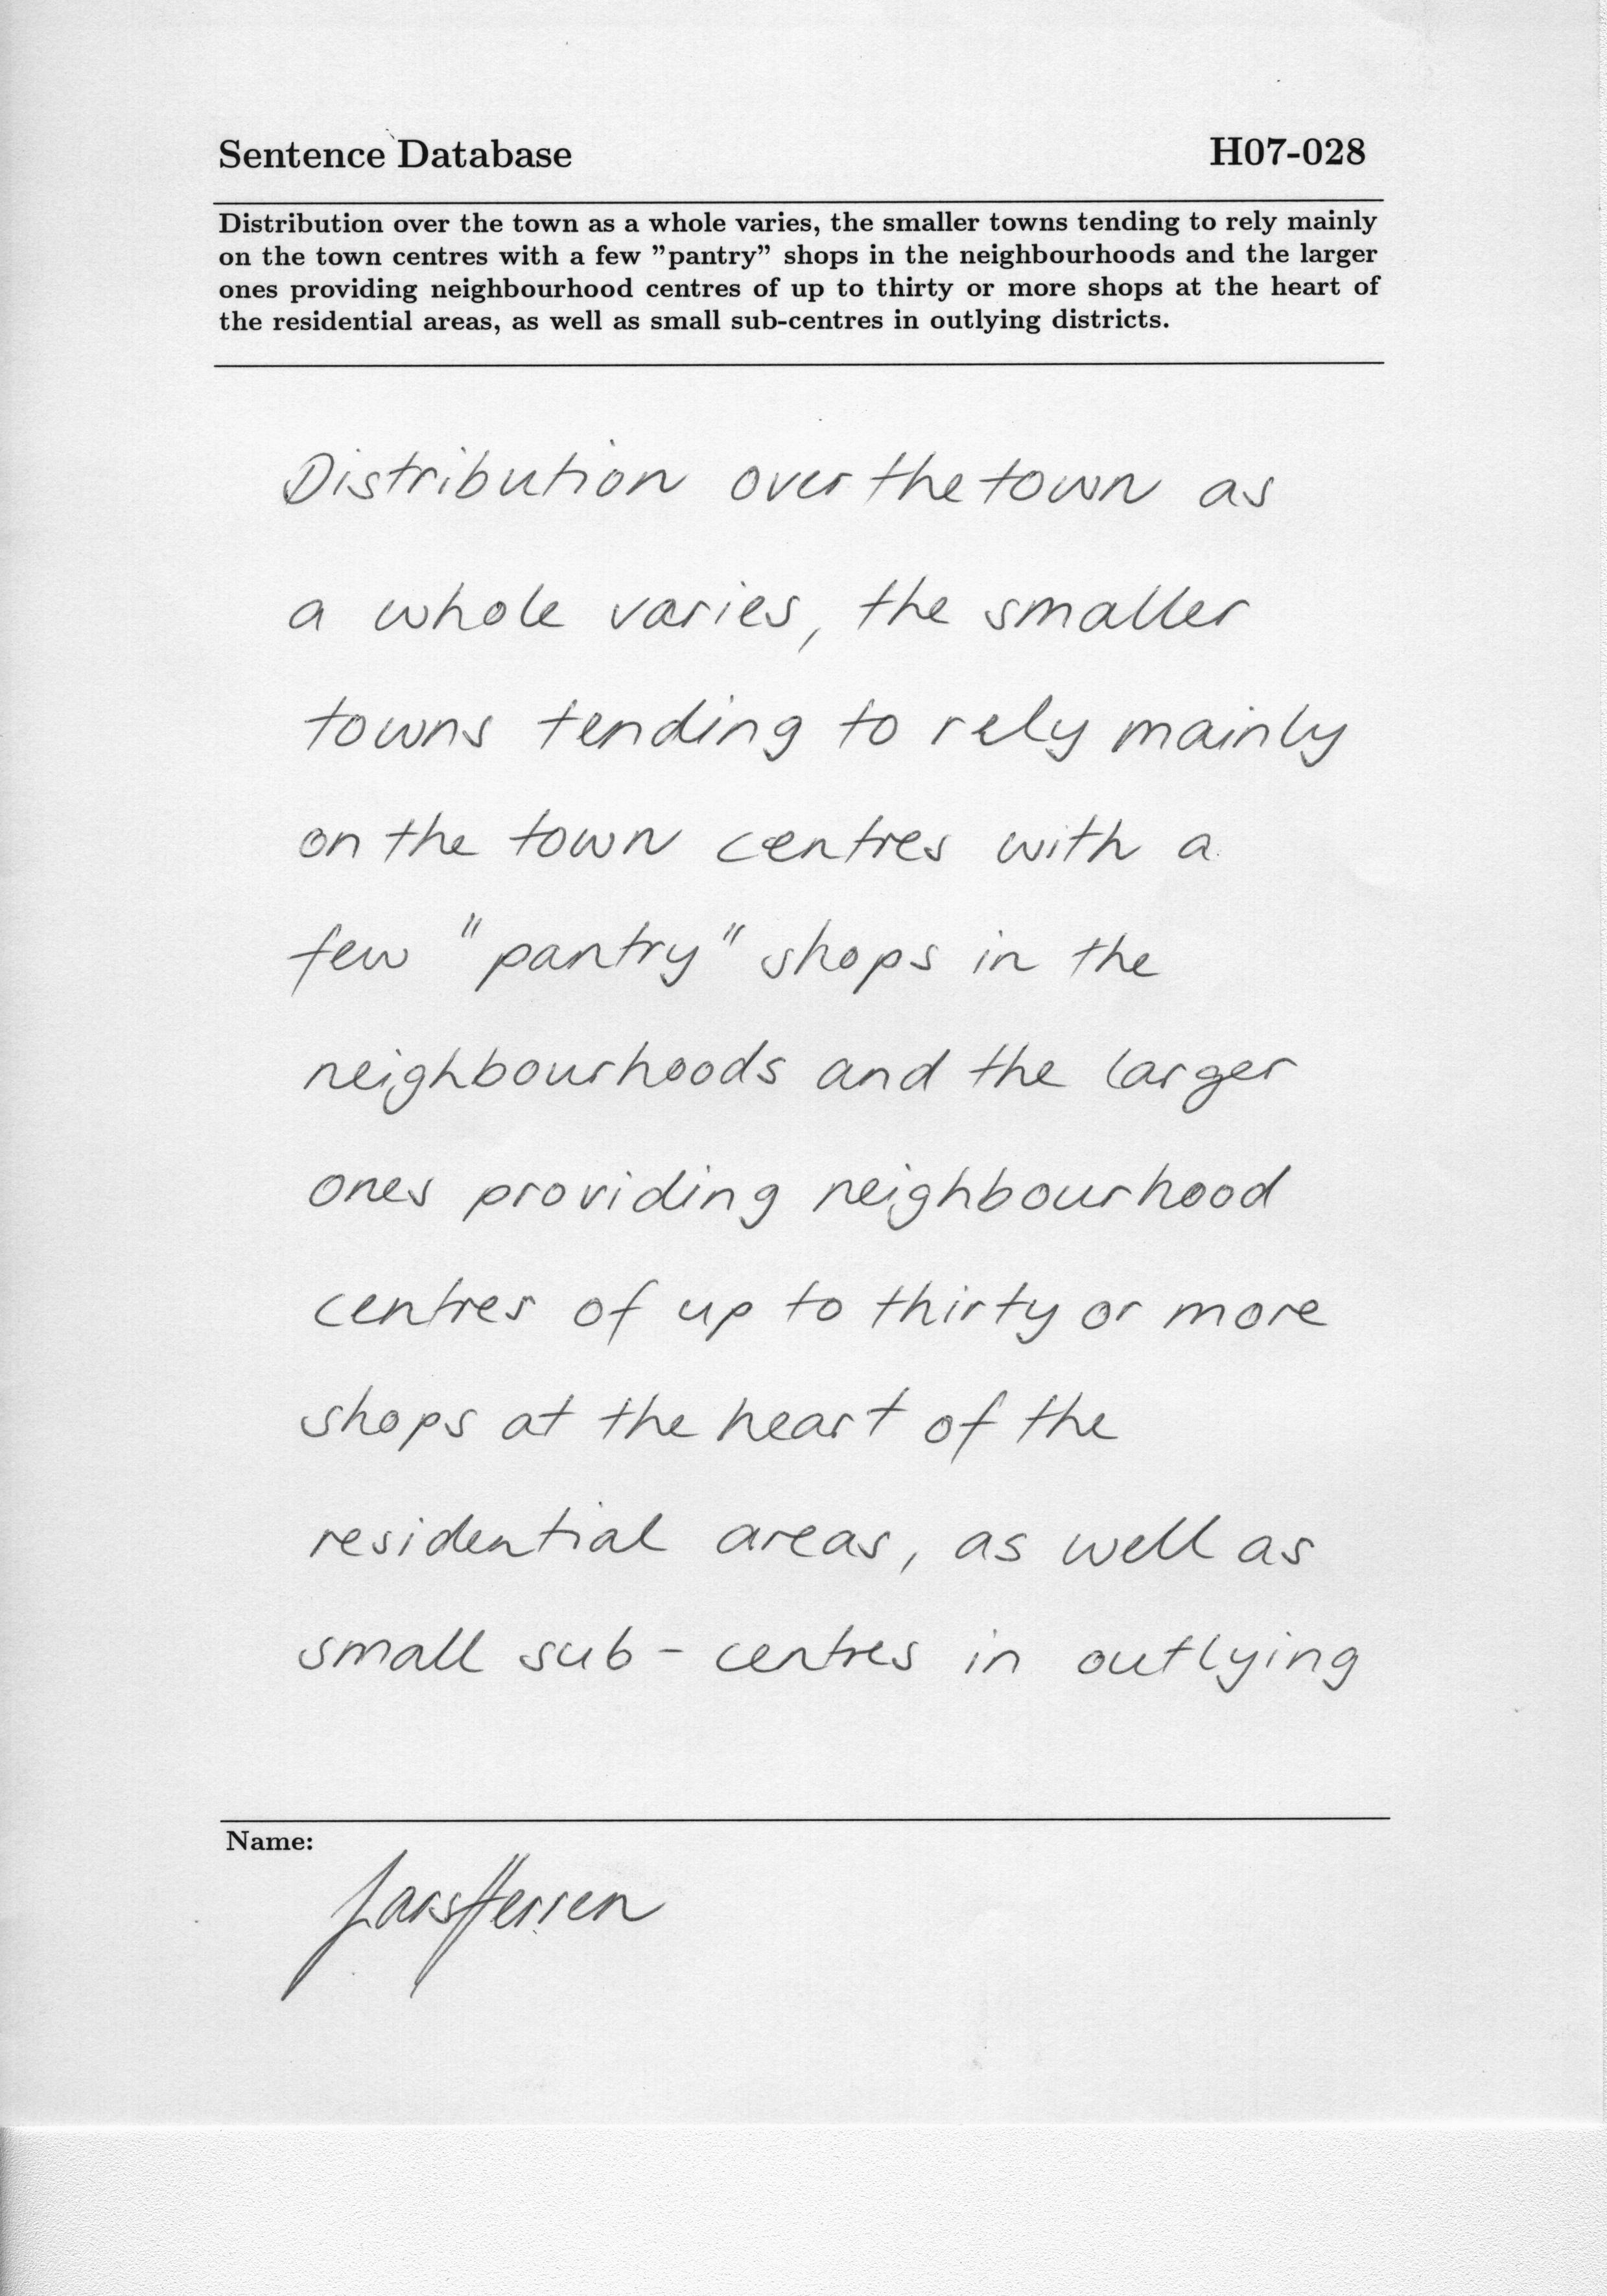 Sentence Database H07-028
Distribution over the town as a whole varies, the smaller towns tending to rely mainly
on the town centres with a few ”pantry” shops in the neighbourhoods and the larger
ones providing neighbourhood centres of up to thirty or more shops at the heart of
the residential areas, as well as small sub-centres in outlying districts.
Distribution over the town as
a whole varies, the smaller
towns tending to rely mainly
on the town centres with a
few "pantry" shops in the
neighbourhoods and the larger
ones providing neighbourhood
centres of up to thirty or more
shops at the heart of the
residential areas, as well as
small sub-centres in outlying
Name: